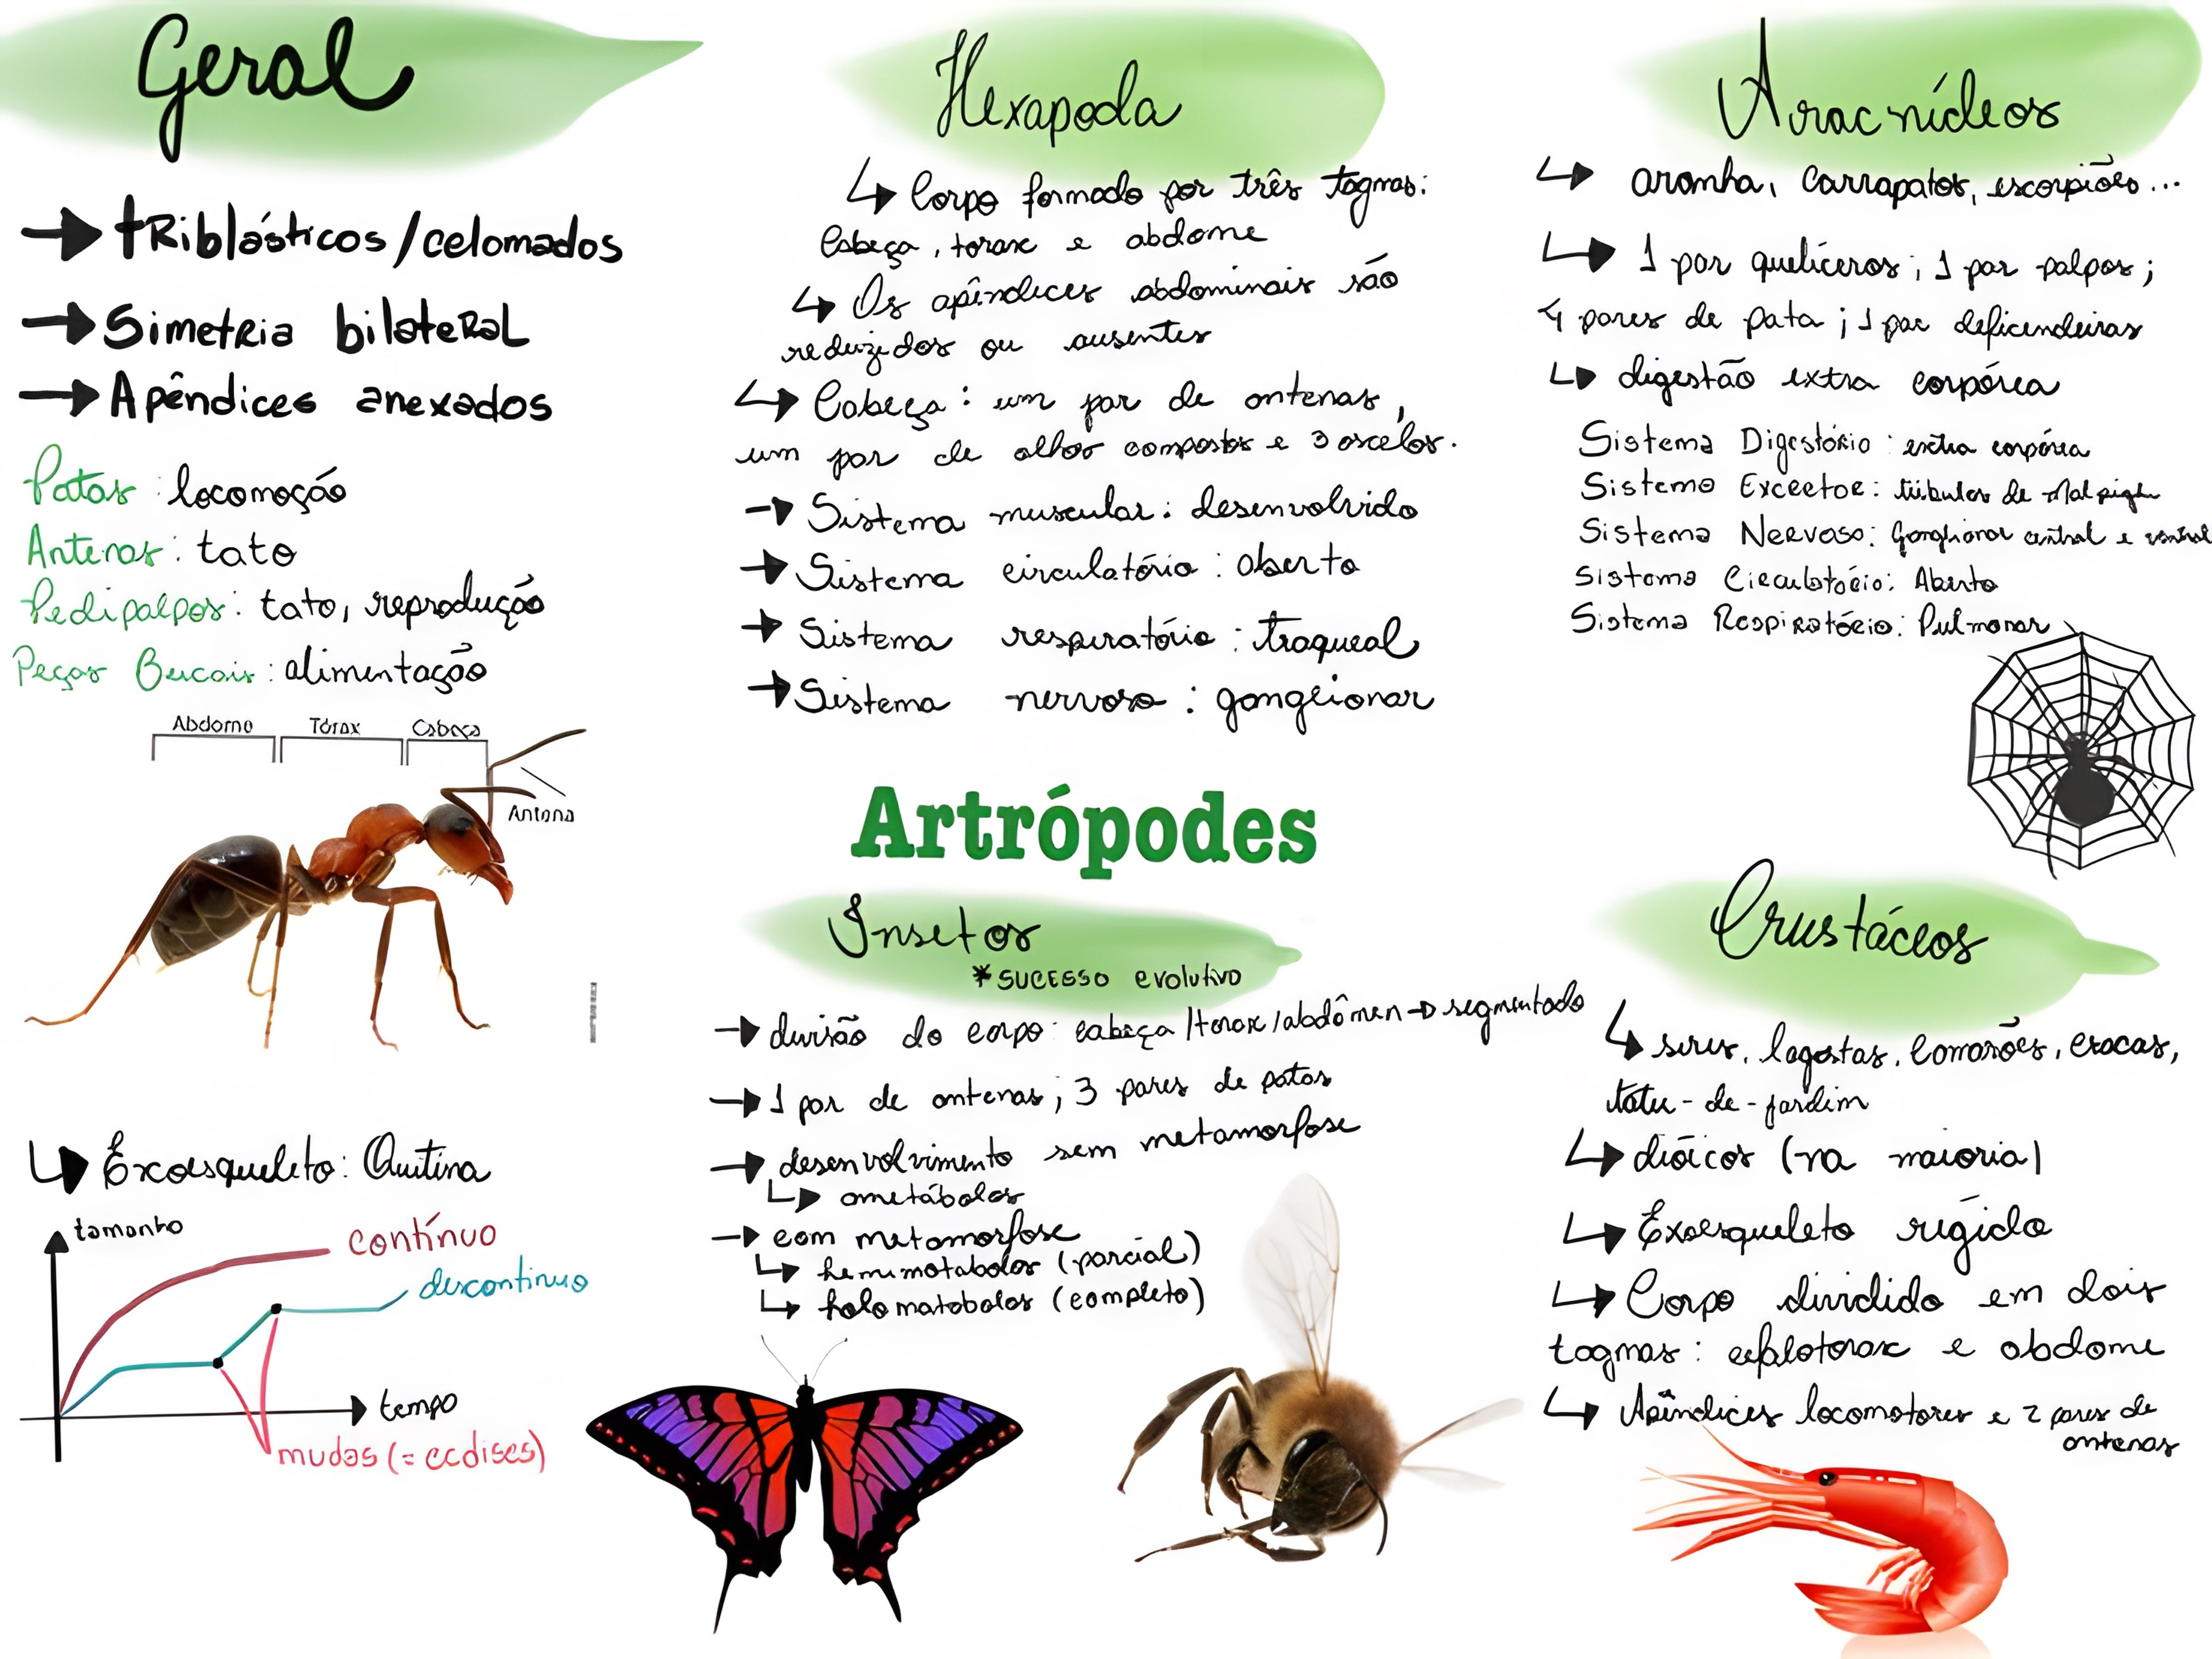 Geral
→ tRiblásticos/celomados
→ Simetria bilateral
→ Apêndices anexados
Patas: locomoção
Antenas: tato
Pedipalpos: tato, reprodução
Peças Bucais: alimentação
Abdome Tórax Cabeça
Antena
↳ Exoesqueleto: Quitina
tamanho
contínuo
descontinuo
tempo
mudas (= ecdises)
Hexapoda
↳ Corpo formado por três tagmas:
Cabeça, torax e abdome
↳ Os apêndices abdominais são
reduzidos ou ausentes
↳ Cabeça: um par de antenas,
um par de olhos compostos e 3 oscelos.
→ Sistema muscular: desenvolvido
→ Sistema circulatório: aberto
→ Sistema respiratório: traqueal
→ Sistema nervoso: ganglionar
Artrópodes
Insetos
*sucesso evolutivo
→ divisão do corpo: cabeça/torax/abdômen → segmentado
→ 1 par de antenas; 3 pares de patas
→ desenvolvimento sem metamorfose
↳ ametábolos
→ com metamorfose
↳ hemimotabolos (parcial)
↳ holomatabolos (completo)
Aracnídeos
↳ aranha, carrapatos, escorpiões...
↳ 1 par quelíceros; 1 par palpos;
4 pares de pata; 1 par deficendeiras
↳ digestão extra corpórea
Sistema Digestório: extra corpórea
Sistema Excretor: túbulos de Malpighi
Sistema Nervoso: Ganglionar central e ventral
Sistema Circulatório: Aberto
Sistema Respiratório: Pulmonar
Crustáceos
↳ siris, lagostas, camarões, cracas,
tatu-de-jardim
↳ dióicos (na maioria)
↳ Exoesqueleto rígido
↳ Corpo dividido em dois
tagmas: cefalotorax e abdome
↳ Apêndices locomotores e 2 pares de
antenas